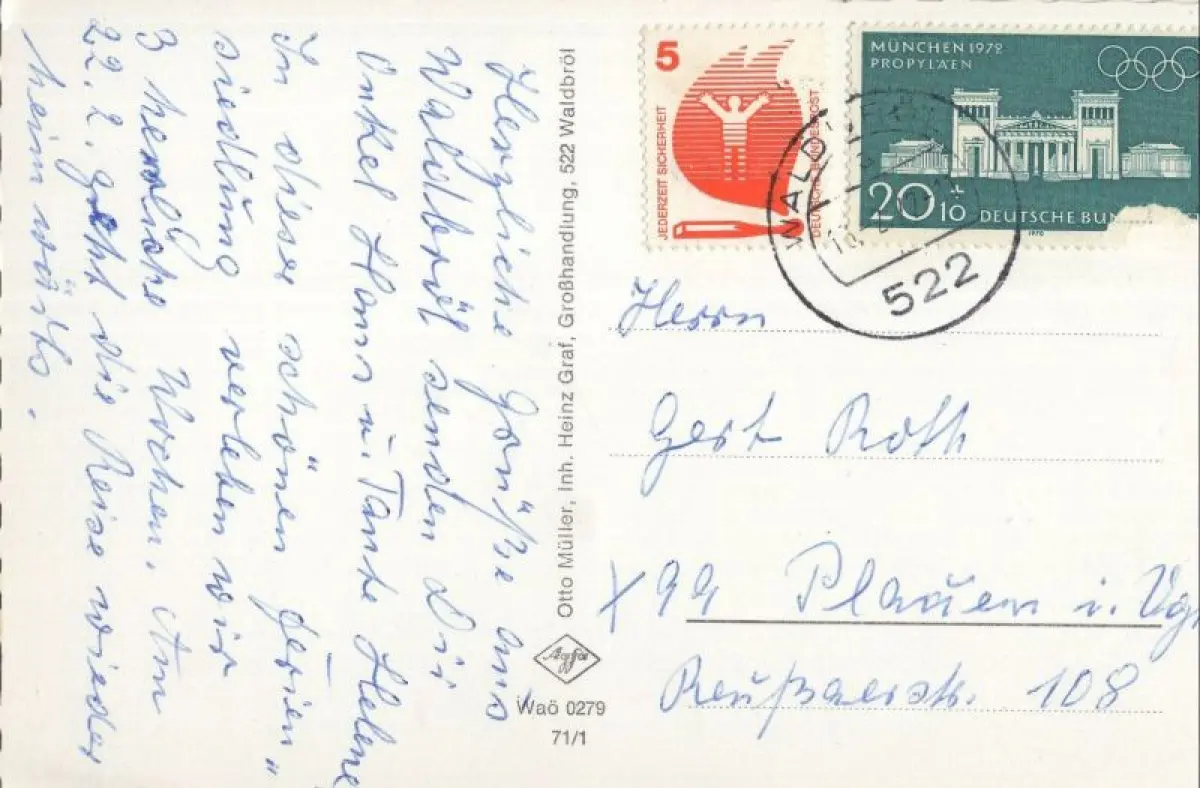 Herzliche Grüße aus
Waldbröl senden Dir
Onkel Hans u. Tante Helene
In dieser schönen „Ferien"
siedlung verleben wir
3 herrliche Wochen. Am
22. 2. geht die Reise wieder
heimwärts.
Otto Müller, Inh. Heinz Graf, Großhandlung, 522 Waldbröl
Agfa
Waö 0279
71/1
5
JEDERZEIT SICHERHEIT
DEUTSCHE BUNDESPOST
MÜNCHEN 1972
PROPYLÄEN
20+10 DEUTSCHE BUN
1970
WALD
522
Herrn
Gert Roth
X 99 Plauen i. Vgt
Reußaerstr. 108